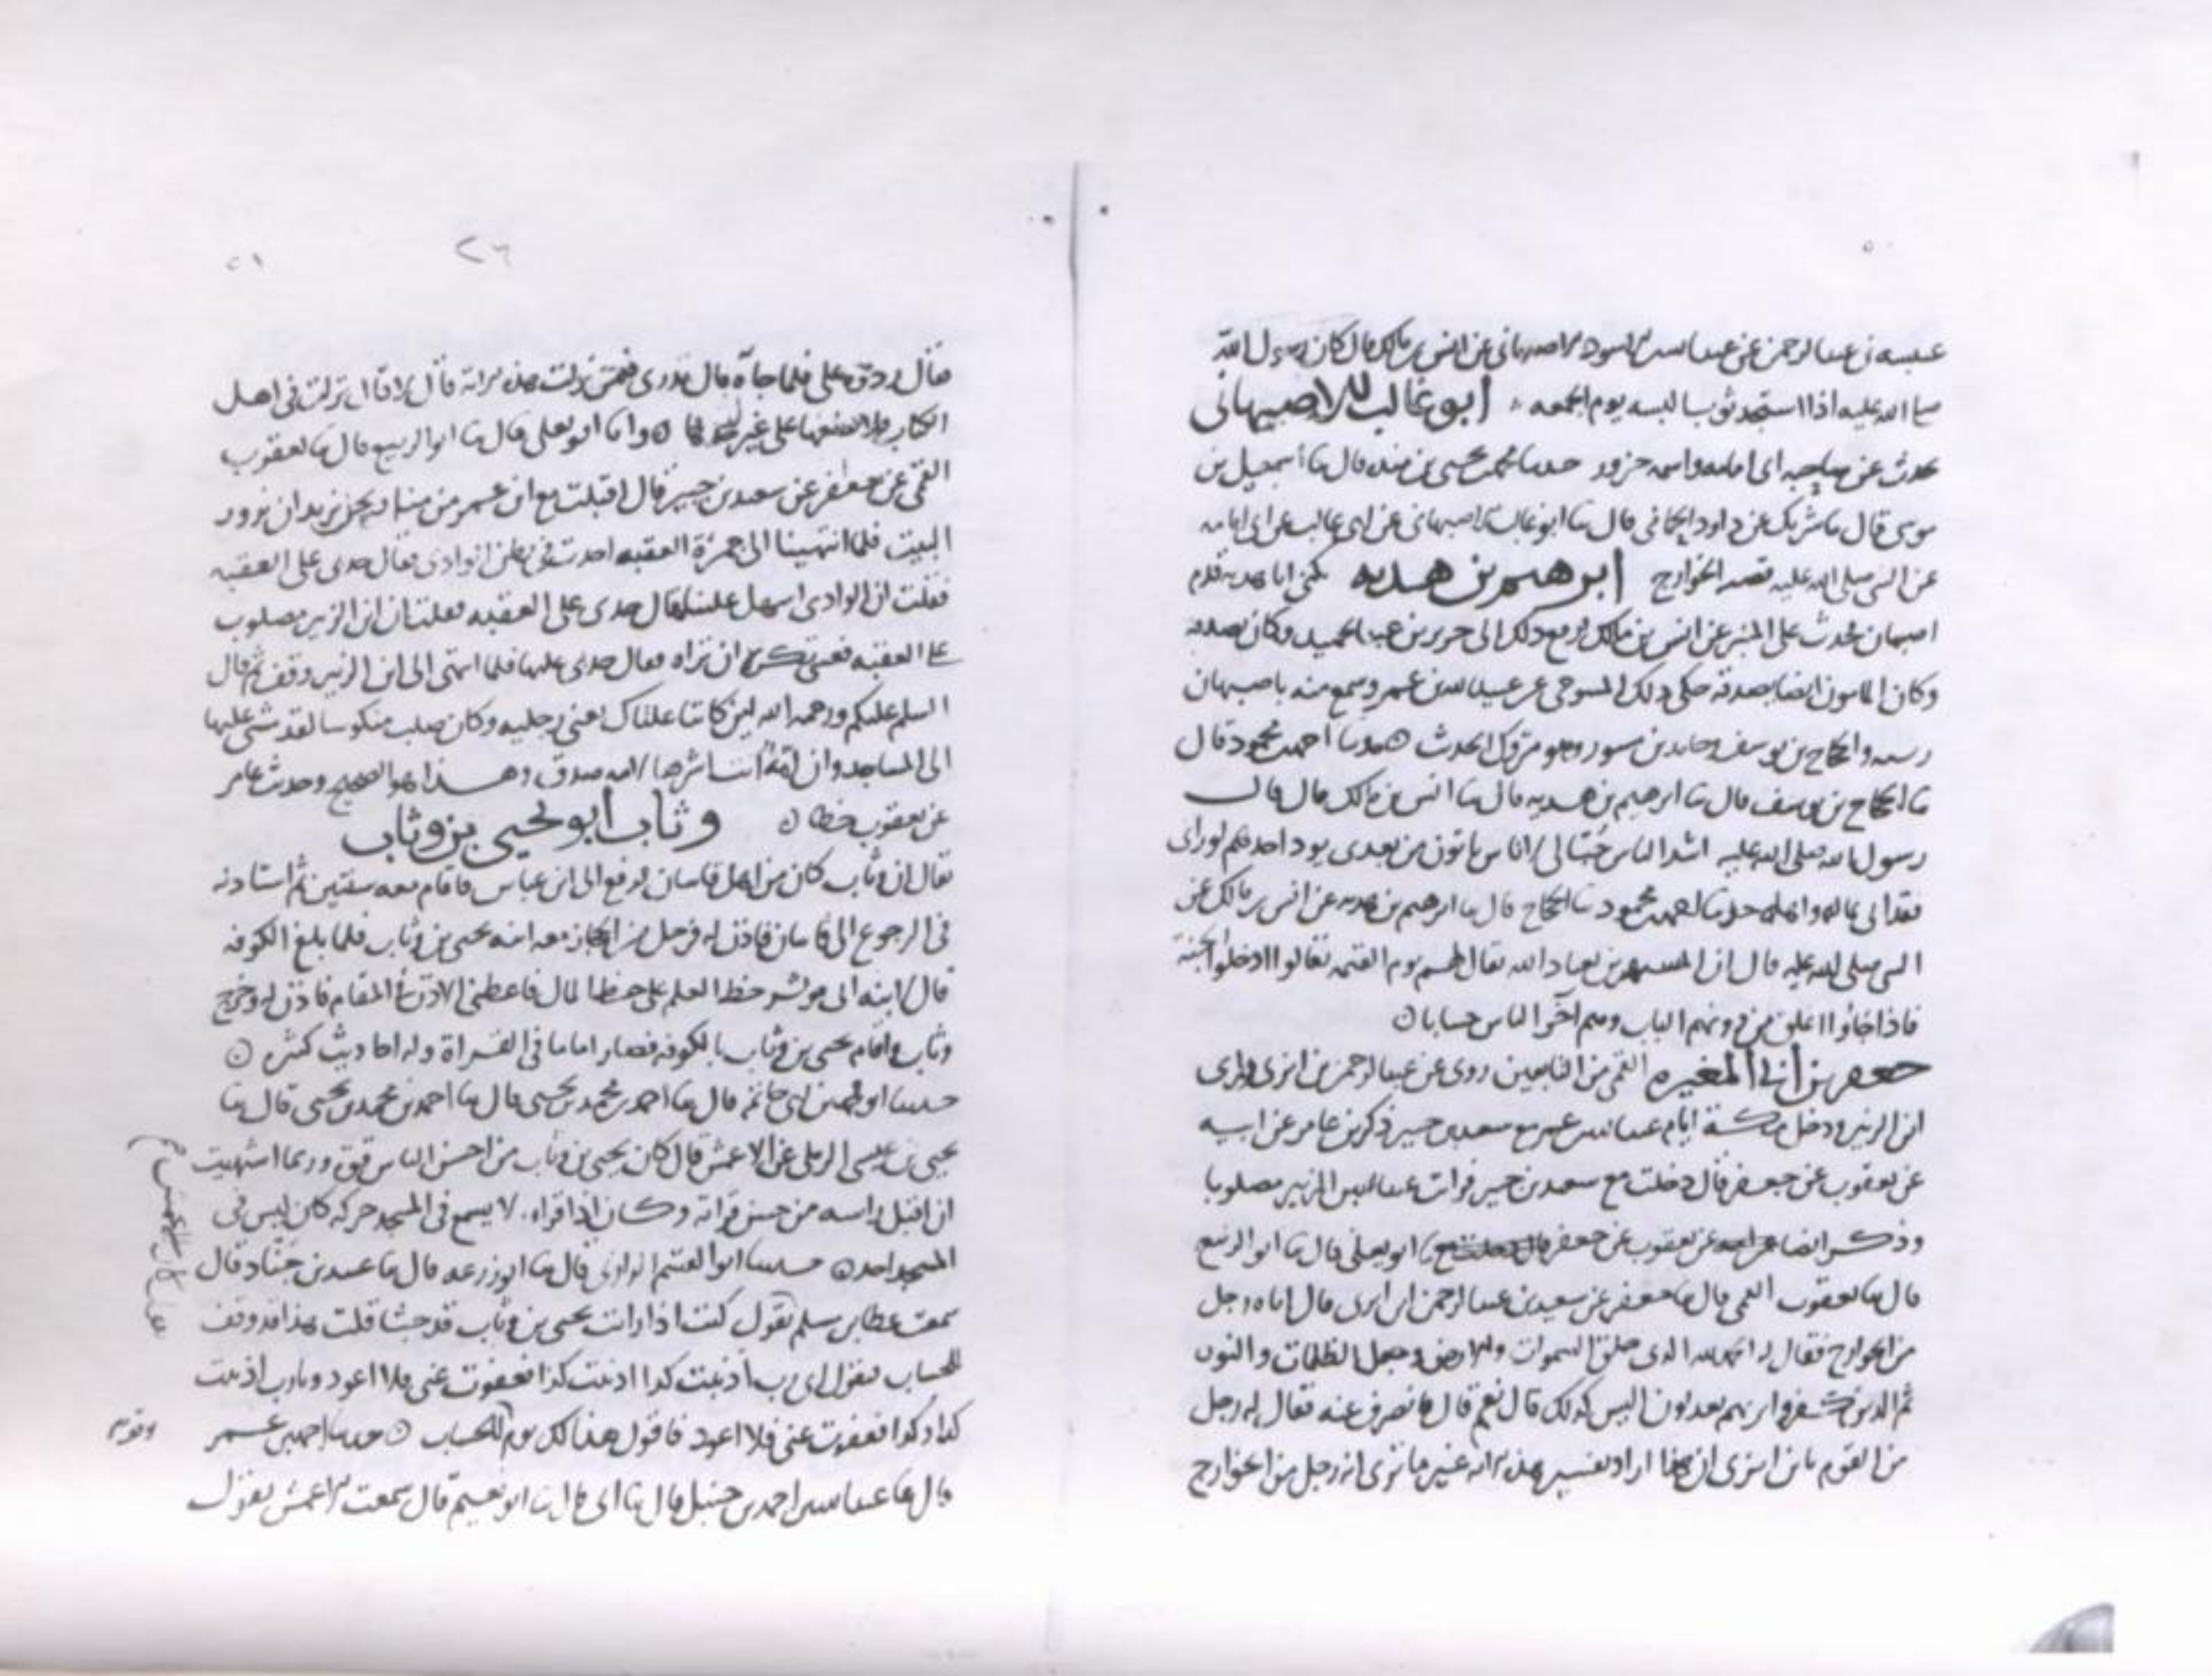 عنبسه بن عبد الرحمن عن عبد الله بن الاسود الاصبهاني عن انس بن مالك قال كان رسول الله
صلى الله عليه اذا استجد ثوبا لبسه يوم الجمعه أبو غالب الاصبهاني
حدث عن صاحبه ابي امامه واسمه حزور حدثنا محمد بن يحيى بن منده قال ثنا اسمعيل بن
موسى قال ثنا شريك عن داود قال ثنا ابو غالب الاصبهاني عن ابي غالب عن ابي امامه
عن النبي صلى الله عليه قصه الخوارج ابرهيم بن هدبه يكنى ابا هدبه قدم
اصبهان فحدث على المنبر عن انس بن مالك فرفع ذلك الى جرير بن عبد الحميد وكان يصدقه
وكان المامون ايضا يصدقه حكى ذلك عن عبيد الله بن عمر وسمع منه باصبهان
رسته والحجاج بن يوسف وحامد بن مسور وهو متروك الحديث حدثنا احمد بن محمود قال
ثنا الحجاج بن يوسف قال ثنا ابرهيم بن هدبه قال ثنا انس بن مالك قال قال
رسول الله صلى الله عليه اشد الناس حبا لي اناس ياتون من بعدي يود احدهم لو راى
فقد الى ماله واهله حدثنا احمد بن محمود ثنا الحجاج قال ثنا ابرهيم بن هدبه عن انس بن مالك عن
النبي صلى الله عليه قال ان بعباد الله يقال لهم يوم القيمه تعالوا ادخلوا الجنة
فاذا جاؤا اغلق من دونهم الباب وهم آخر الناس حسابا
جعفر بن أبي المغيره القمي من التابعين روى عن عبد الرحمن بن ابزى وراى
ابن الزبير ودخل مكة ايام عبد الله بن عمر مع سعيد بن جبير ذكر بن عامر عن ابيه
عن يعقوب عن جعفر قال دخلت مع سعيد بن جبير فرايت عبد الله بن الزبير مصلوبا
وذكر ايضا عن يعقوب عن جعفر ابو يعلى قال ثنا ابو الربيع
قال ثنا يعقوب القمي قال ثنا جعفر عن سعيد بن عبد الرحمن ابن ابزى قال اتاه رجل
من الخوارج فقال له الحمد لله الذي خلق السموات والارض وجعل الظلمات والنور
ثم الذين كفروا بربهم يعدلون اليس كذلك قال نعم قال فانصرف عنه فقال له رجل
من القوم يابن ابزى ان هذا اراد تفسير هذه الآية غير ما ترى انه رجل من الخوارج
٢٦
فقال ردوه علي فلما جآه قال تدري فيمن نزلت هذه الاية قال لا قال نزلت في اهل
الكتاب فلا تضعها على غير وانا ابو يعلى قال ثنا ابو الربيع قال ثنا يعقوب
القمي عن جعفر عن سعيد بن جبير قال اقبلت مع ابن عمر من منى نحن نريد ان نزور
البيت فلما انتهينا الى جمرة العقبه اخذت في بطن الوادي فقال خذي على العقبه
فقلت ان الوادي اسهل علينا قال خذي على العقبه فقلت ان ابن الزبير مصلوب
على العقبه فعسى تكره ان تراه فقال خذي عليها فلما انتهى الى ابن الزبير وقف ثم قال
السلم عليكم ورحمه الله لين كانتا علتاك يعني رجليه وكان صلب منكوسا لقد مشي عليها
الى المساجد وان امة انت شرها لامه صدق وهذا هو الصحيح وحديث عامر
عن يعقوب خطا وثاب أبو يحيى بن وثاب
يقال ان وثاب كان من اهل قاسان فوقع الى ابن عباس فاقام معه سنتين ثم استاذنه
في الرجوع الى قاسان فاذن له فرحل من الحجاز معه ابنه يحيى بن وثاب فلما بلغ الكوفه
قال ابنه اني موثر حظ العلم على حظ المال فاعطني الاذن في المقام فاذن له وخرج
وثاب واقام يحيى بن وثاب بالكوفه فصار اماما في القراة وله احاديث كثيره
حدثنا ابو محمد بن ابي حاتم قال ثنا احمد بن محمد بن يحيى قال ثنا احمد بن محمد بن يحيى قال ثنا
يحيى بن عيسى الرملي عن الاعمش قال كان يحيى بن وثاب من احسن الناس قراة وربما اشتهيت
ان اقبل راسه من حسن قراته وكان اذا قراء لا يسمع في المسجد حركه كان ليس في
المسجد احد حدثنا ابو القسم الرازي قال ثنا ابو زرعه قال ثنا عبيد بن جناد قال
سمعت عطا بن مسلم يقول كنت اذا رايت يحيى بن وثاب قد جثا قلت هذا قد وقف
للحساب فيقول اي رب اذنبت كذا اذنبت كذا فعفوت عني فلا اعود ويارب اذنبت
كذا وكذا فعفوت عني فلا اعود فاقول هذا لك يوم الحساب حدثنا احمد بن عمر
قال ثنا عبد الله بن احمد بن حنبل قال ثنا ابي ثنا ابو نعيم قال سمعت الاعمش يقول